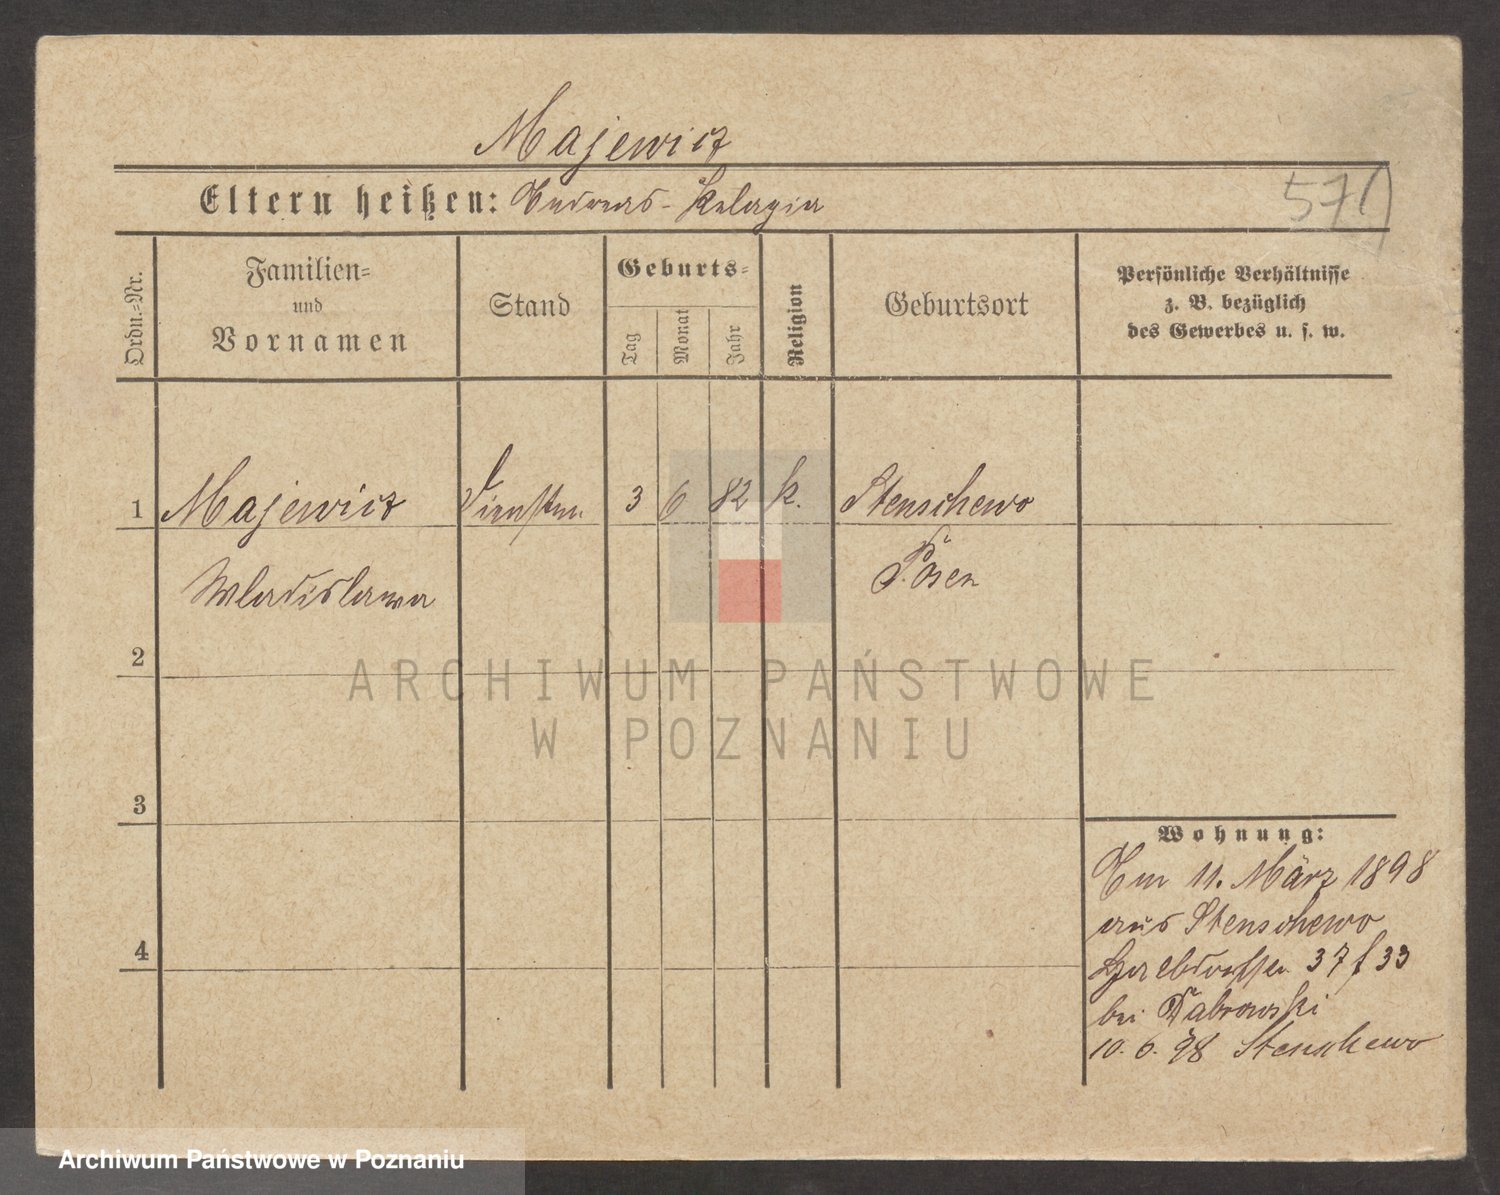 Majewicz
Eltern heißen: Andreas - Pelagia
571)
Ordn.=Nr.
Familien=
und
Vornamen
Stand
Geburts=
Tag
Monat
Jahr
Religion
Geburtsort
Persönliche Verhältnisse
z. B. bezüglich
des Gewerbes u. s. w.
1 Majewicz 3 6 82 k. Stenschewo
Wladislawa Posen
2
3
4
Wohnung:
Am 11. März 1898
aus Stenschewo
37 f 33
bei Dabrowski
10. 6. 98 Stenschewo
ARCHIWUM PAŃSTWOWE
W POZNANIU
Archiwum Państwowe w Poznaniu